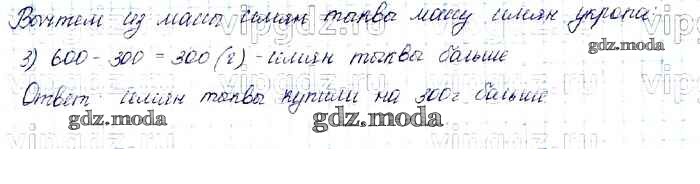 Вычтем из массы семян тыквы массу семян укропа:
gdz.moda
3) 600 - 300 = 300 (г) - семян тыквы больше
Ответ: семян тыквы купили на 300г больше
gdz.moda
gdz.moda